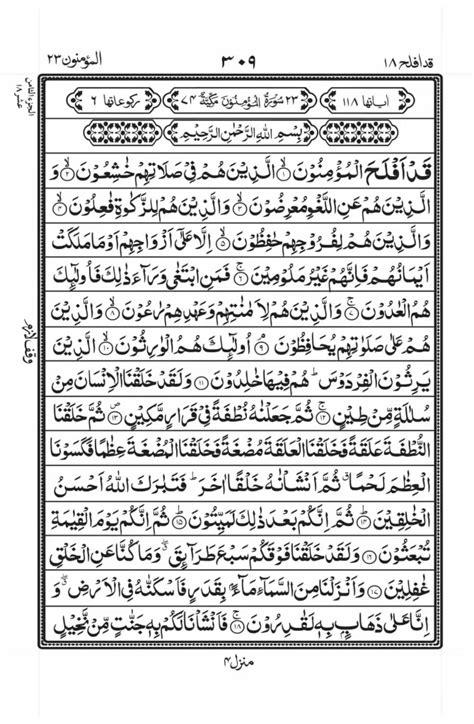 قد افلح ١٨ ٣٠٩ المؤمنون ٢٣
الجزء الثامن عشر ١٨
اٰیاتھا ١١٨ ٢٣ سُوْرَةُ الْمُؤْمِنُوْنَ مَكِّيَّةٌ ٧٤ رکوعاتھا ٦
بِسْمِ اللهِ الرَّحْمٰنِ الرَّحِيْمِ
قَدْ اَفْلَحَ الْمُؤْمِنُوْنَ ۙ١ الَّذِيْنَ هُمْ فِيْ صَلَاتِهِمْ خٰشِعُوْنَ ۙ٢ وَ
الَّذِيْنَ هُمْ عَنِ اللَّغْوِ مُعْرِضُوْنَ ۙ٣ وَالَّذِيْنَ هُمْ لِلزَّكٰوةِ فٰعِلُوْنَ ۙ٤
وَالَّذِيْنَ هُمْ لِفُرُوْجِهِمْ حٰفِظُوْنَ ۙ٥ اِلَّا عَلٰٓى اَزْوَاجِهِمْ اَوْ مَا مَلَكَتْ
اَيْمَانُهُمْ فَاِنَّهُمْ غَيْرُ مَلُوْمِيْنَ ۚ٦ فَمَنِ ابْتَغٰى وَرَآءَ ذٰلِكَ فَاُولٰٓئِكَ
هُمُ الْعٰدُوْنَ ۚ٧ وَالَّذِيْنَ هُمْ لِاَمٰنٰتِهِمْ وَعَهْدِهِمْ رٰعُوْنَ ۙ٨ وَالَّذِيْنَ
هُمْ عَلٰى صَلَوٰتِهِمْ يُحَافِظُوْنَ ۘ٩ اُولٰٓئِكَ هُمُ الْوٰرِثُوْنَ ۙ١٠ الَّذِيْنَ
وقف لازم
يَرِثُوْنَ الْفِرْدَوْسَ ؕ هُمْ فِيْهَا خٰلِدُوْنَ ١١ وَلَقَدْ خَلَقْنَا الْاِنْسَانَ مِنْ
سُلٰلَةٍ مِّنْ طِيْنٍ ۚ١٢ ثُمَّ جَعَلْنٰهُ نُطْفَةً فِيْ قَرَارٍ مَّكِيْنٍ ۪١٣ ثُمَّ خَلَقْنَا
النُّطْفَةَ عَلَقَةً فَخَلَقْنَا الْعَلَقَةَ مُضْغَةً فَخَلَقْنَا الْمُضْغَةَ عِظٰمًا فَكَسَوْنَا
الْعِظٰمَ لَحْمًا ۗ ثُمَّ اَنْشَاْنٰهُ خَلْقًا اٰخَرَ ؕ فَتَبٰرَكَ اللهُ اَحْسَنُ
الْخٰلِقِيْنَ ؕ١٤ ثُمَّ اِنَّكُمْ بَعْدَ ذٰلِكَ لَمَيِّتُوْنَ ؕ١٥ ثُمَّ اِنَّكُمْ يَوْمَ الْقِيٰمَةِ
تُبْعَثُوْنَ ١٦ وَلَقَدْ خَلَقْنَا فَوْقَكُمْ سَبْعَ طَرَآئِقَ ۖ وَمَا كُنَّا عَنِ الْخَلْقِ
غٰفِلِيْنَ ١٧ وَاَنْزَلْنَا مِنَ السَّمَآءِ مَآءًۢ بِقَدَرٍ فَاَسْكَنّٰهُ فِي الْاَرْضِ ۖ وَ
اِنَّا عَلٰى ذَهَابٍۭ بِهٖ لَقٰدِرُوْنَ ۚ١٨ فَاَنْشَاْنَا لَكُمْ بِهٖ جَنّٰتٍ مِّنْ نَّخِيْلٍ
منزل ٤